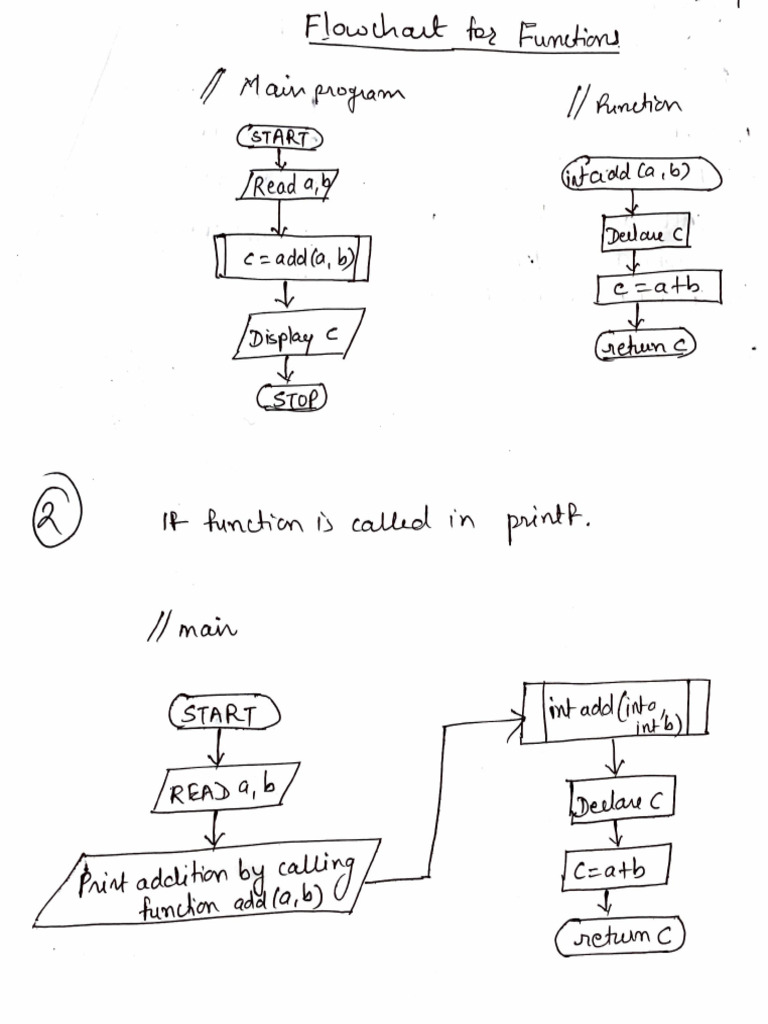 Flowchart for Functions
// Main program
START
Read a,b
c = add(a, b)
Display c
STOP
// Function
int add (a, b)
Declare C
c = a+b
return C
2
If function is called in printf.
// main
START
READ a, b
Print addition by calling
function add(a,b)
int add(int a,
int b)
Declare C
C=a+b
return C